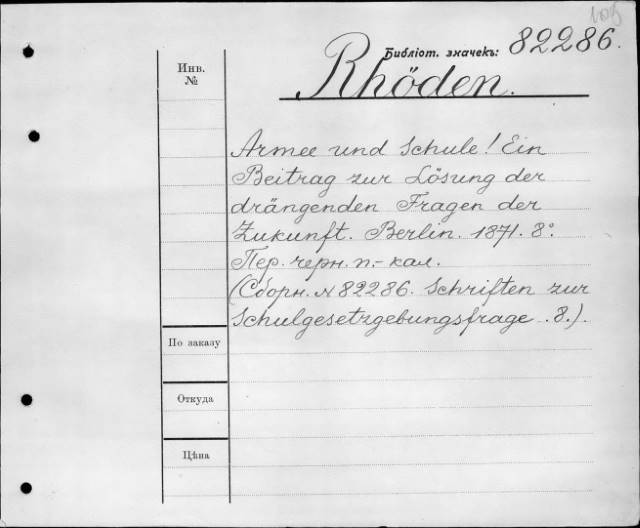 Библіот. значекъ: 82286.
Инв.
№
Rhöden.
Armee und Schule! Ein
Beitrag zur Lösung der
drängenden Fragen der
Zukunft. Berlin. 1871. 8°.
Пер. черн. п.-кал.
(Сборн. № 82286. Schriften zur
Schulgesetzgebungsfrage. 8.).
По заказу
Откуда
Цѣна